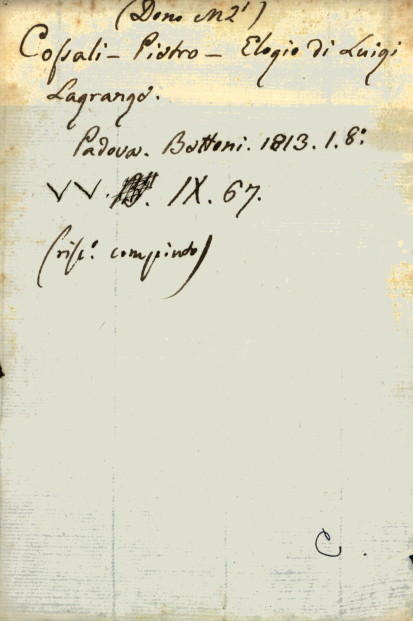 (Dono M2ⁱ)
Coſsali – Pietro – Elogio di Luigi
Lagrange.
Padova. Bettoni. 1813. 1. 8º
VV. IX. 67.
(riſc.º compiuto)
C.